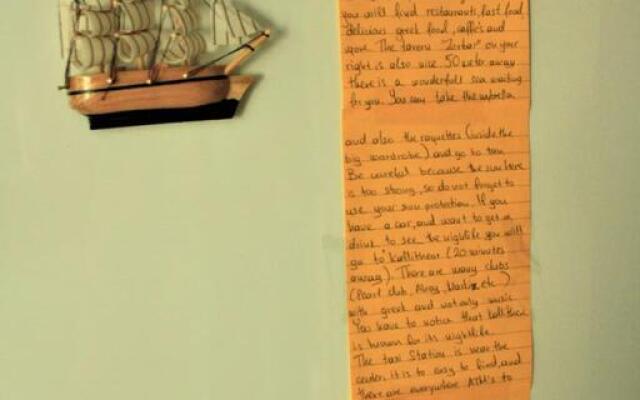 you will find restaurants, fast food,
delicious greek food, caffe's and
more. The tavern "Zorbas" on your
right is also nice 50 meter away
there is a wonderfull sea waiting
for you. You can take the umbrella
and also the raquettes (inside the
big wardrobe) and go to tan.
Be careful because the sun here
is too strong, so do not forget to
use your sun protection. If you
have a car, and want to get a
drink to see the nightlife you will
go to Kallithea (20 minutes
away). There are many clubs
(Pearl club, Ahoy, etc)
with greek and not only music
You have to notice that Kallithea
is known for its nightlife.
The taxi Station is near the
center it is to easy to find, and
there are everywhere ATM's to